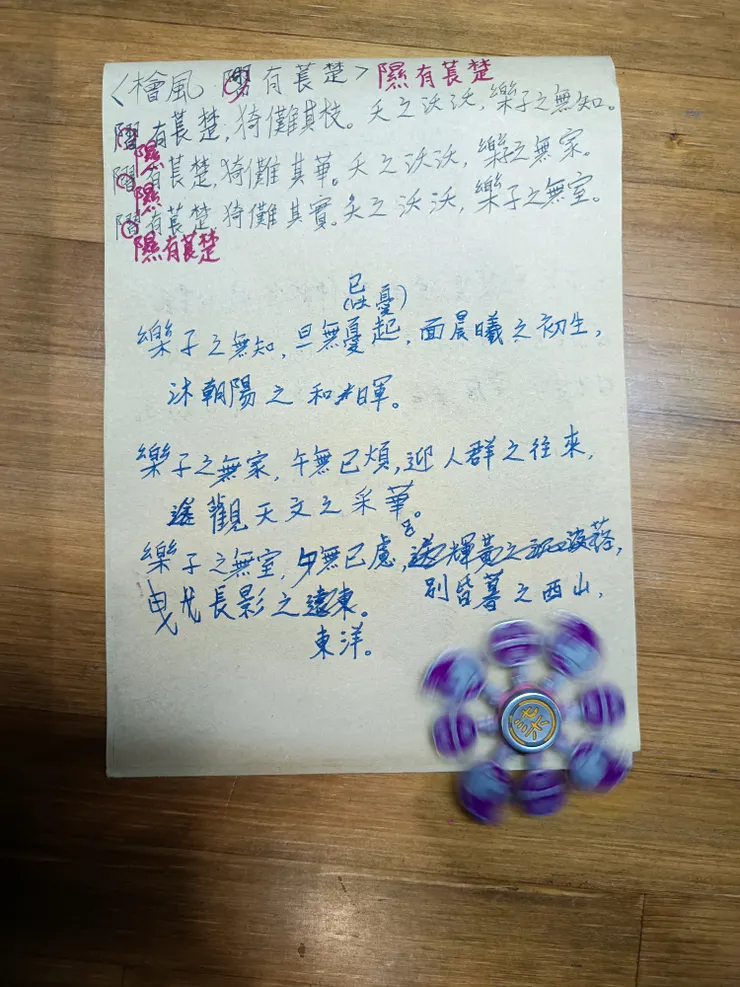 〈檜風 隰有萇楚〉隰有萇楚
有萇楚,猗儺其枝。夭之沃沃,樂子之無知。
隰
有萇楚,猗儺其華。夭之沃沃,樂子之無家。
隰
有萇楚,猗儺其實。夭之沃沃,樂子之無室。
隰有萇楚
已
憂)
樂子之無知,旦無憂起,面晨曦之初生,
沐朝陽之和暉。
樂子之無家,午無已煩,迎人群之往來,
遙觀天文之采華。
樂子之無室,夕無已慮,
別昏暮之西山,
曳長影之東。
東洋。